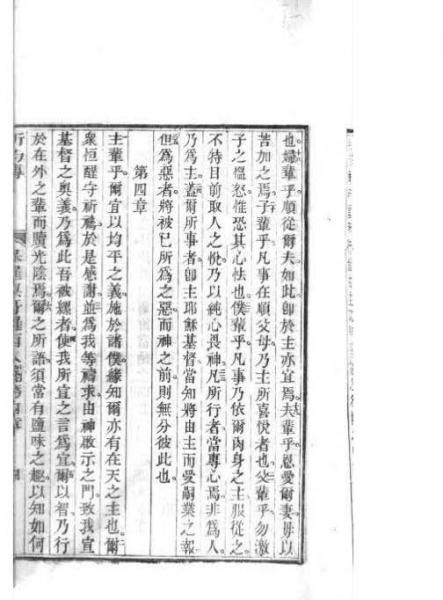 也婦輩乎順從爾夫如此卽於主亦宜焉夫輩乎恩愛爾妻毋以
苦加之焉子輩乎凡事在順父母乃主所喜悅者也父輩乎勿激
子之慍怒惟恐其心怯也僕輩乎凡事乃依爾肉身之主服從之
不待目前取人之悅乃以純心畏神凡所行者當專心焉非爲人
乃爲主蓋爾所事者卽主耶穌基督當知將由主而愛嗣業之報
但爲惡者將被已所爲之惡而神之前則無分彼此也
第四章
主輩乎爾宜以均平之義施於諸僕緣知爾亦有在天之主也爾
衆恒醒守祈禱於是感謝並爲我等禱求由神啟示之門致我宣
基督之奧義乃爲此吾被縲者使我所宣之言爲宜爾以智乃行
於在外之輩而贖光陰焉爾之所語須當有鹽味之趣以知如何